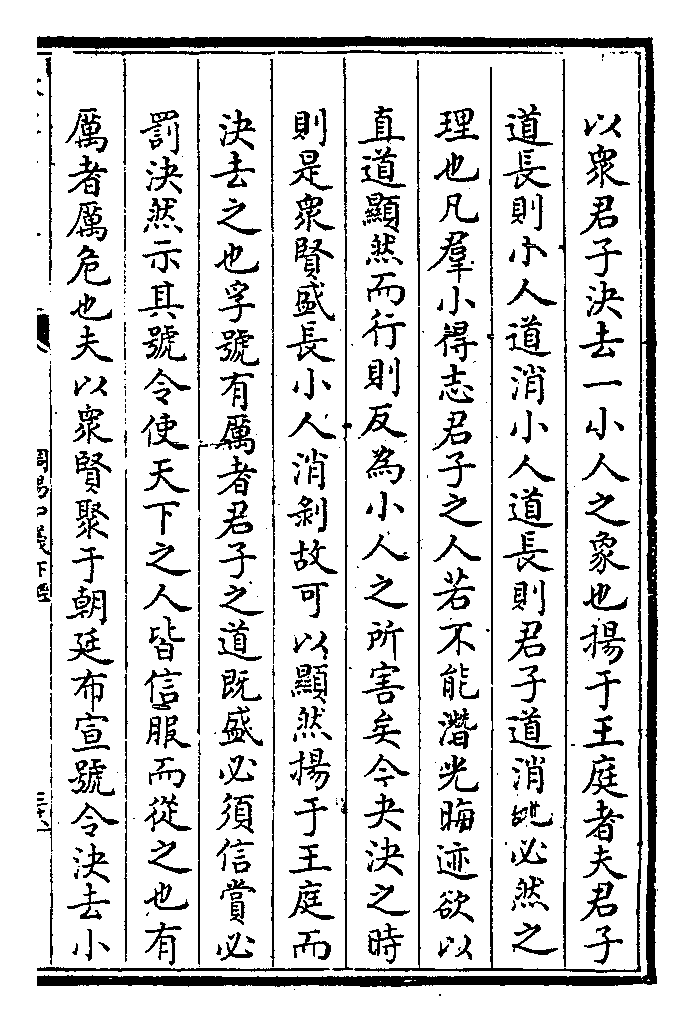 以衆君子決去一小人之象也揚于王庭者夫君子
道長則小人道消小人道長則君子道消此必然之
理也凡羣小得志君子之人若不能潛光晦迹欲以
直道顯然而行則反為小人之所害矣今夬決之時
則是衆賢盛長小人消剝故可以顯然揚于王庭而
決去之也孚號有厲者君子之道既盛必須信賞必
罰決然示其號令使天下之人皆信服而從之也有
厲者厲危也夫以衆賢聚于朝廷布宣號令決去小
周易口義下經